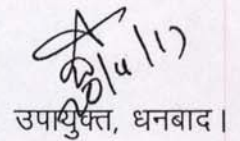 20/4/17
उपायुक्त, धनबाद।